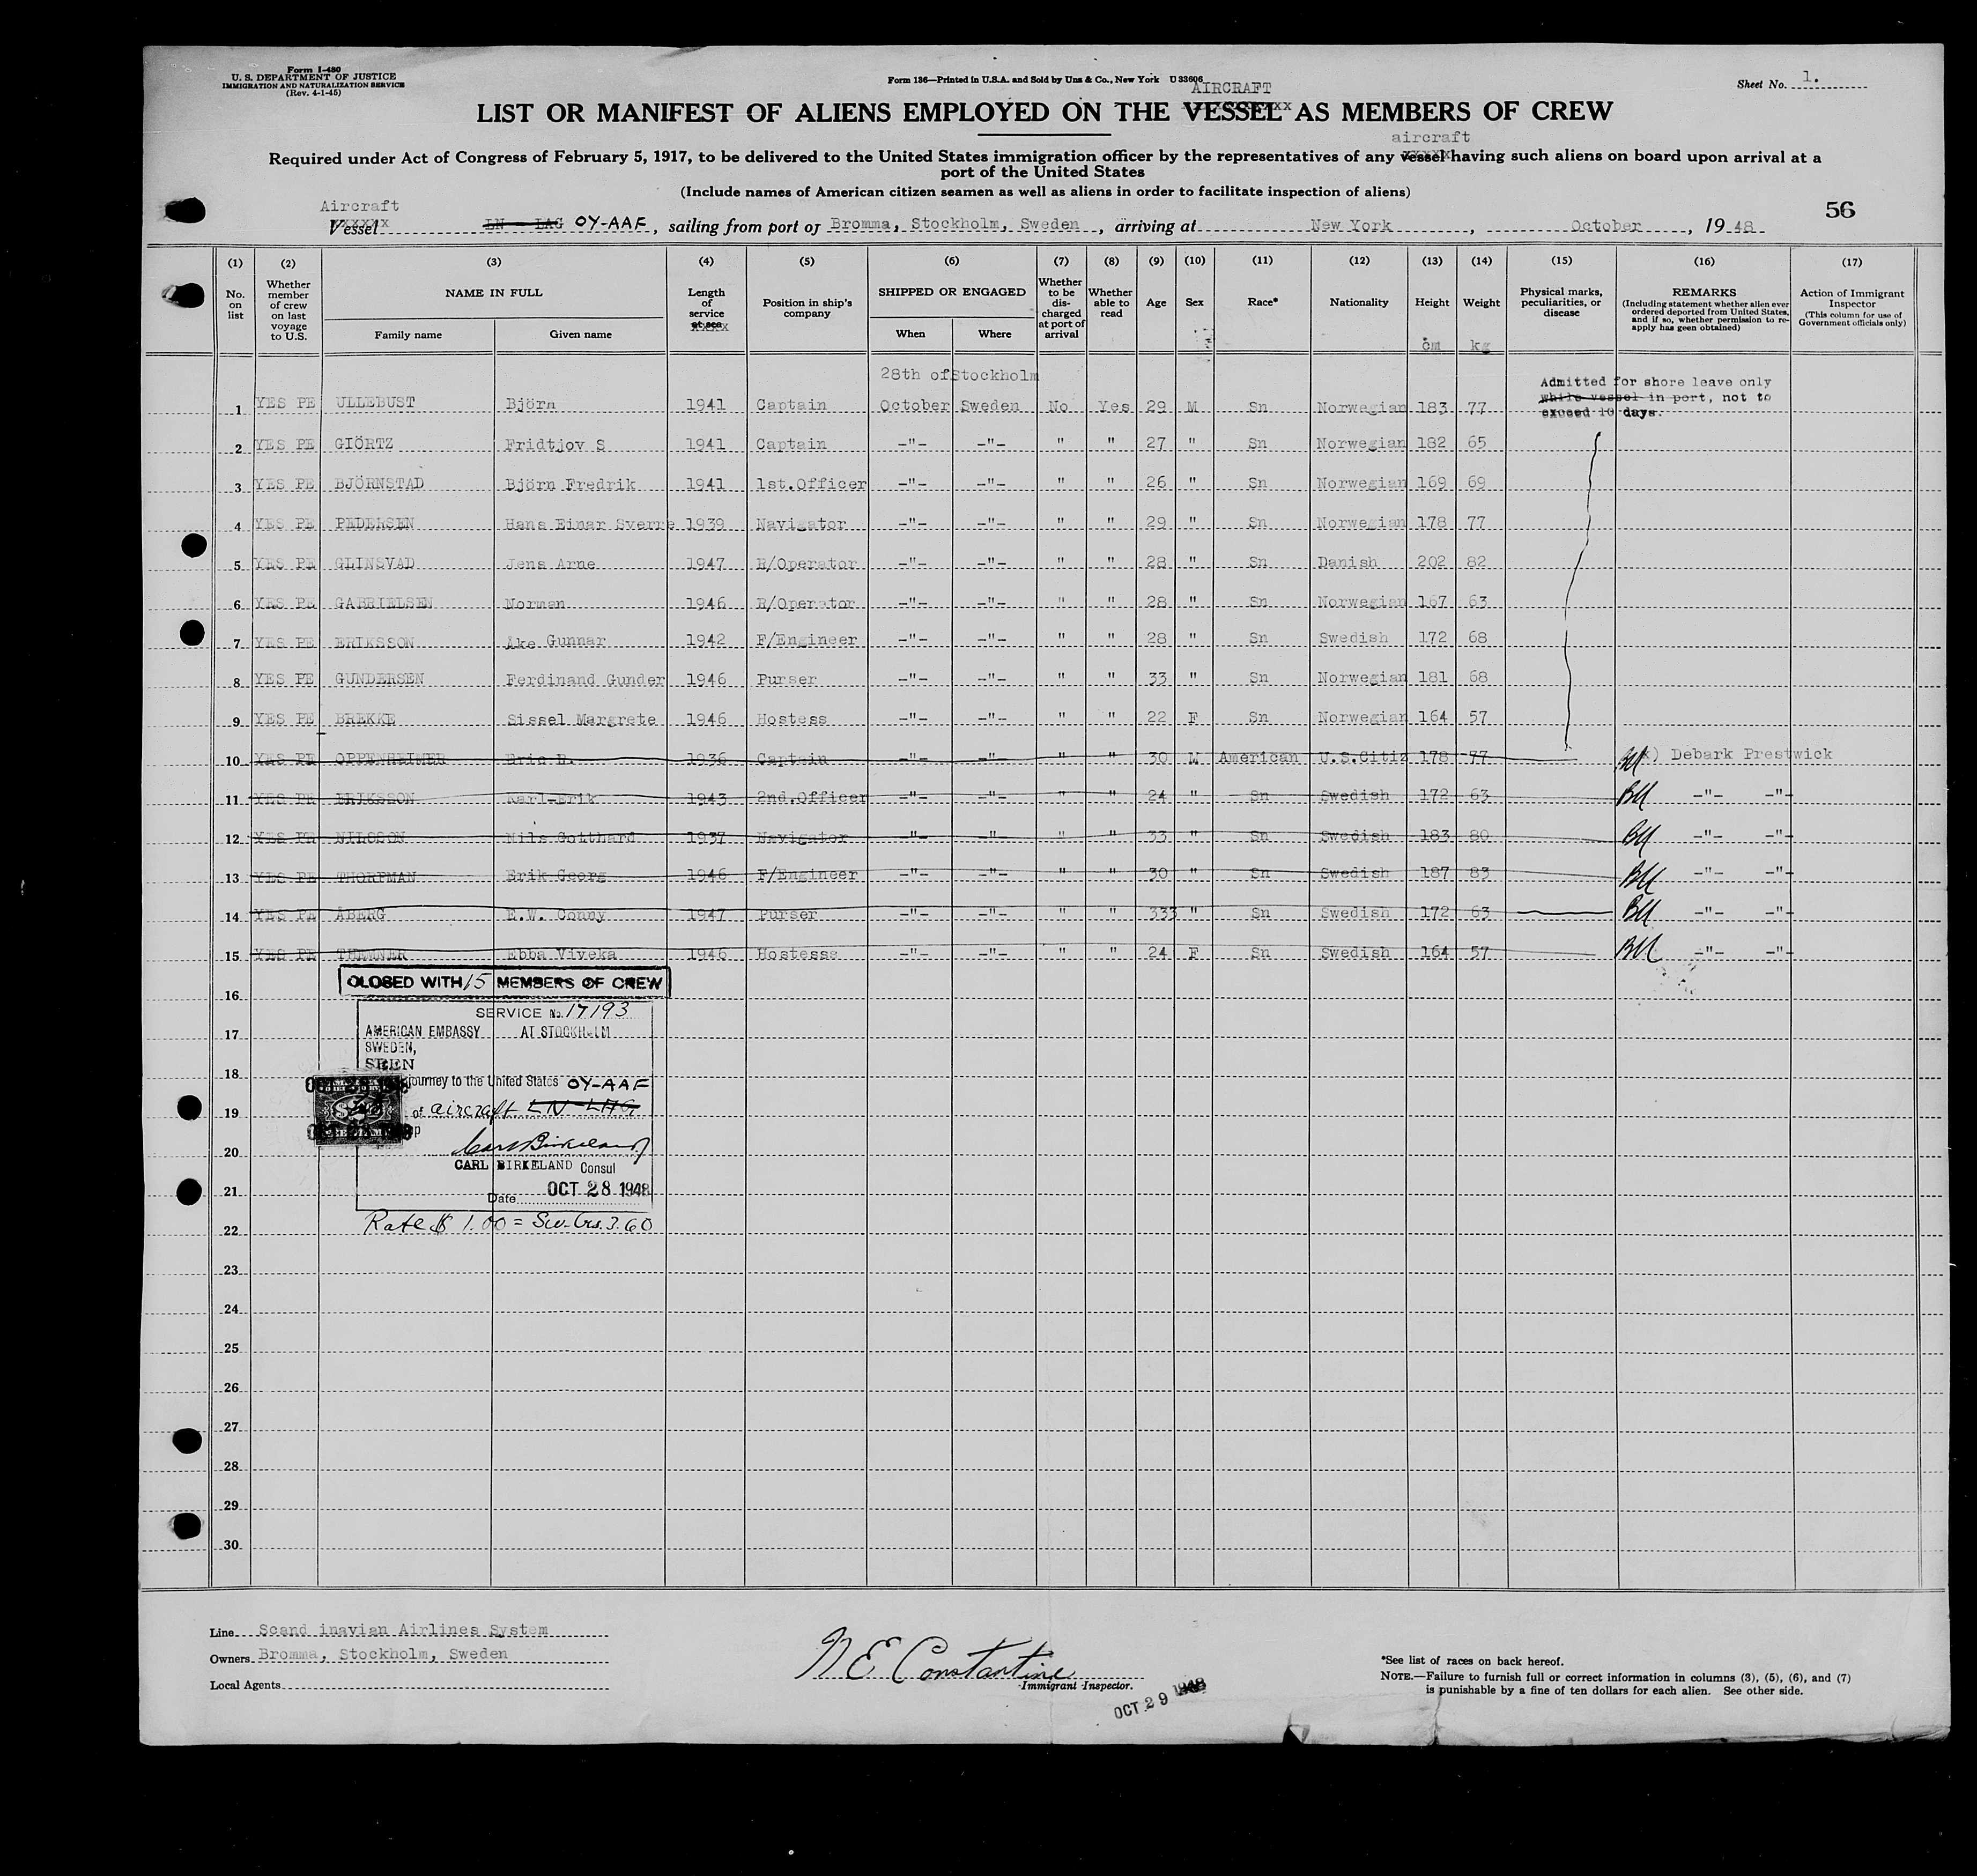 Form I-480
U. S. DEPARTMENT OF JUSTICE
IMMIGRATION AND NATURALIZATION SERVICE
(Rev. 4-1-45)
Form 136—Printed in U.S.A. and Sold by Unz & Co., New York U 33606
Sheet No. 1.
AIRCRAFT
LIST OR MANIFEST OF ALIENS EMPLOYED ON THE VESSEL AS MEMBERS OF CREW
aircraft
Required under Act of Congress of February 5, 1917, to be delivered to the United States immigration officer by the representatives of any vessel having such aliens on board upon arrival at a
port of the United States
(Include names of American citizen seamen as well as aliens in order to facilitate inspection of aliens)
56
Aircraft
Vessel LN - LAG OY-AAF, sailing from port of Bromma, Stockholm, Sweden, arriving at New York, October, 1948
(1) (2) (3) (4) (5) (6) (7) (8) (9) (10) (11) (12) (13) (14) (15) (16) (17)
No. on list
Whether member of crew on last voyage to U.S.
NAME IN FULL
Family name Given name
Length of service at sea
Position in ship's company
SHIPPED OR ENGAGED
When Where
Whether to be discharged at port of arrival
Whether able to read
Age Sex Race* Nationality Height Weight
cm kg
Physical marks, peculiarities, or disease
REMARKS
(Including statement whether alien ever ordered deported from United States, and if so, whether permission to re-apply has geen obtained)
Action of Immigrant Inspector
(This column for use of Government officials only)
28th of Stockholm
Admitted for shore leave only
while vessel in port, not to
exceed 10 days.
1 YES PE ULLEBUST Björn 1941 Captain October Sweden No Yes 29 M Sn Norwegian 183 77
2 YES PE GIÖRTZ Fridtjov S 1941 Captain -"- -"- " " 27 " Sn Norwegian 182 65
3 YES PE BJÖRNSTAD Björn Fredrik 1941 1st.Officer -"- -"- " " 26 " Sn Norwegian 169 69
4 YES PE PEDERSEN Hans Einar Sverre 1939 Navigator -"- -"- " " 29 " Sn Norwegian 178 77
5 YES PE GLINSVAD Jens Arne 1947 R/Operator -"- -"- " " 28 " Sn Danish 202 82
6 YES PE GABRIELSEN Norman 1946 R/Operator -"- -"- " " 28 " Sn Norwegian 167 63
7 YES PE ERIKSSON Åke Gunnar 1942 F/Engineer -"- -"- " " 28 " Sn Swedish 172 68
8 YES PE GUNDERSEN Ferdinand Gunder 1946 Purser -"- -"- " " 33 " Sn Norwegian 181 68
9 YES PE BREKKE Sissel Margrete 1946 Hostess -"- -"- " " 22 F Sn Norwegian 164 57
10 YES PE OPPENHEIMER Eric B. 1936 Captain -"- -"- " " 30 M American U.S.Citiz 178 77 x) Debark Prestwick
11 YES PE ERIKSSON Karl-Erik 1943 2nd.Officer -"- -"- " " 24 " Sn Swedish 172 63 -"- -"-
12 YES PE NILSSON Nils Gotthard 1937 Navigator -"- -"- " " 33 " Sn Swedish 183 80 -"- -"-
13 YES PE THORFMAN Erik Georg 1946 F/Engineer -"- -"- " " 30 " Sn Swedish 187 83 -"- -"-
14 YES PE ÅBERG E.W. Conny 1947 Purser -"- -"- " " 333 " Sn Swedish 172 63 -"- -"-
15 YES PE Ebba Viveka 1946 Hostess -"- -"- " " 24 F Sn Swedish 164 57 -"- -"-
CLOSED WITH 15 MEMBERS OF CREW
16
SERVICE No. 17193
17
AMERICAN EMBASSY AT STOCKHOLM
SWEDEN,
SEEN
18
journey to the United States OY-AAF
19
of aircraft LN-LAG
20
CARL BIRKELAND Consul
21
Date OCT 28 1948
22
Rate $ 1.00 = Sw. Crs. 3.60
23
24
25
26
27
28
29
30
Line Scandinavian Airlines System
Owners Bromma, Stockholm, Sweden
Local Agents
N E Constantine
Immigrant Inspector.
OCT 29 1948
*See list of races on back hereof.
NOTE.—Failure to furnish full or correct information in columns (3), (5), (6), and (7)
is punishable by a fine of ten dollars for each alien. See other side.